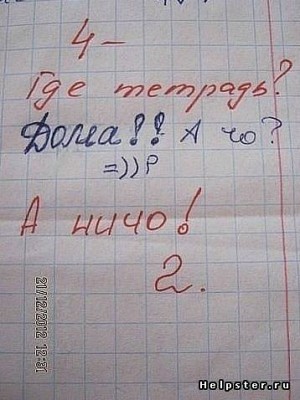 4-
Где тетрадь?
Дома!! А чо?
=))P
А ничо!
2.
21/12/2012 12:31
Helpster.ru